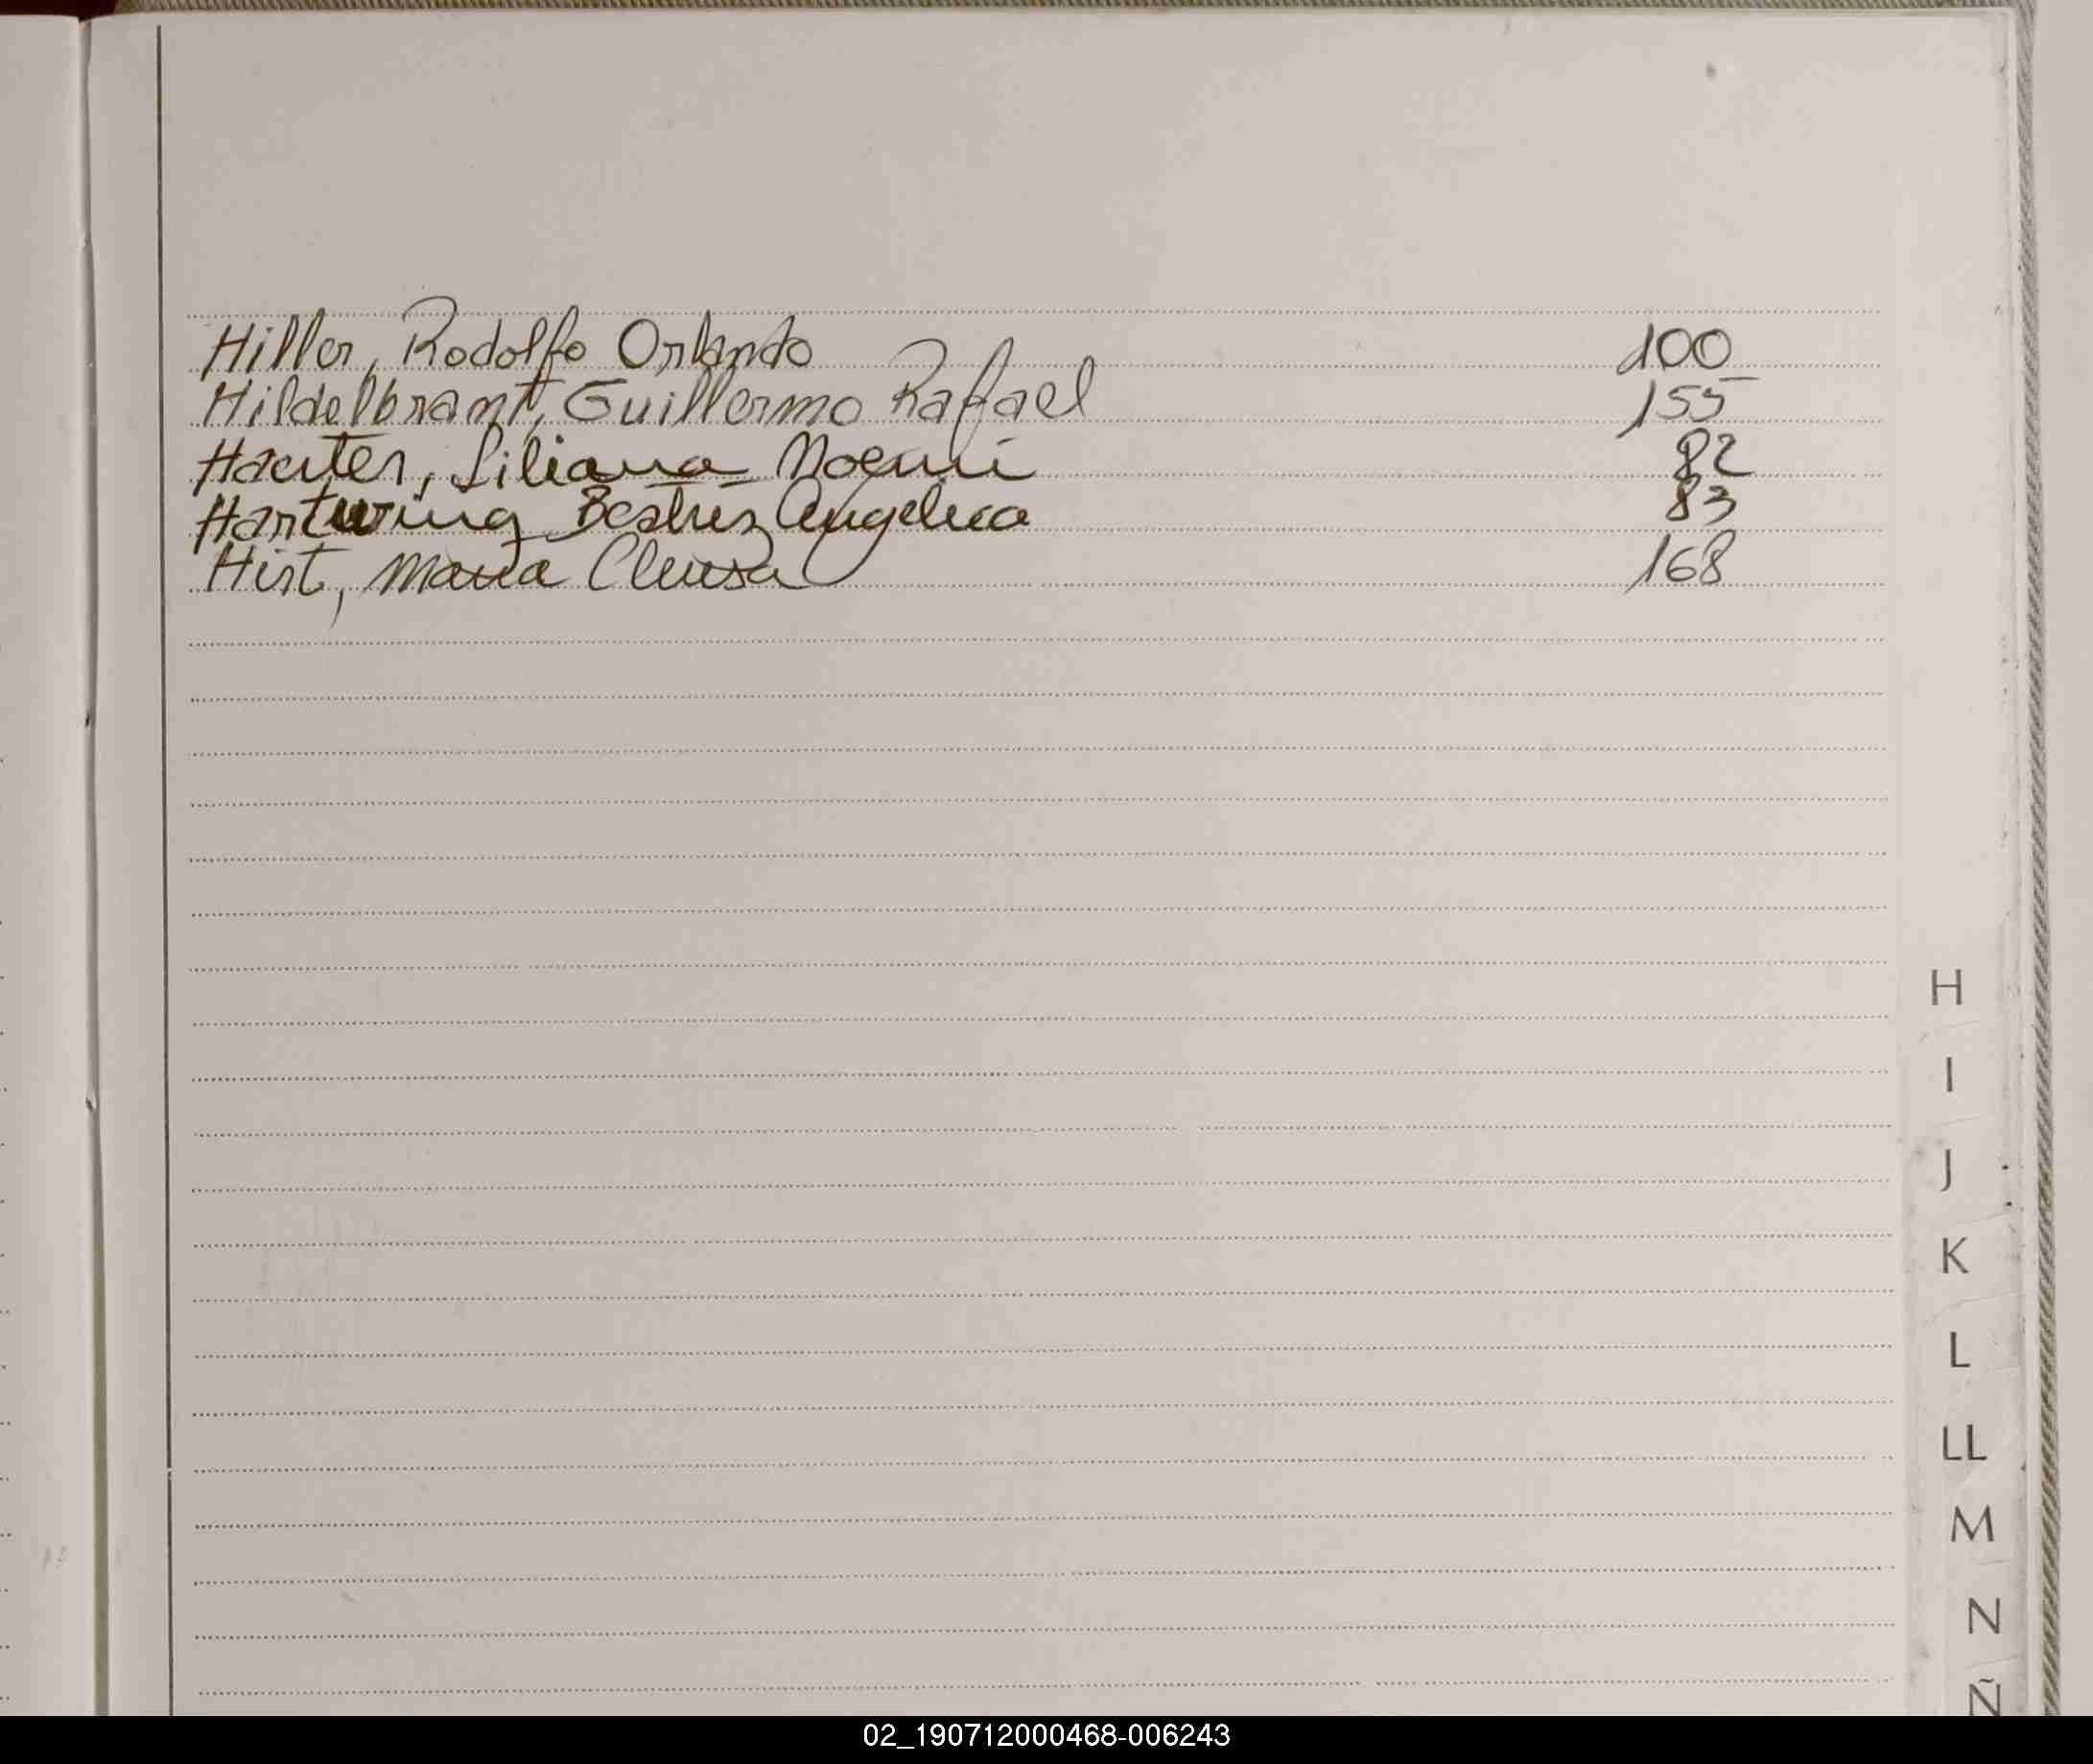 Hiller, Rodolfo Orlando 100
Hildelbrant, Guillermo Rafael 155
Hauter, Liliana Noemi 82
Hartwing Beatriz Angelica 83
Hist, Maria Cleusa 168
H
I
J
K
L
LL
M
N
Ñ
02_190712000468-006243